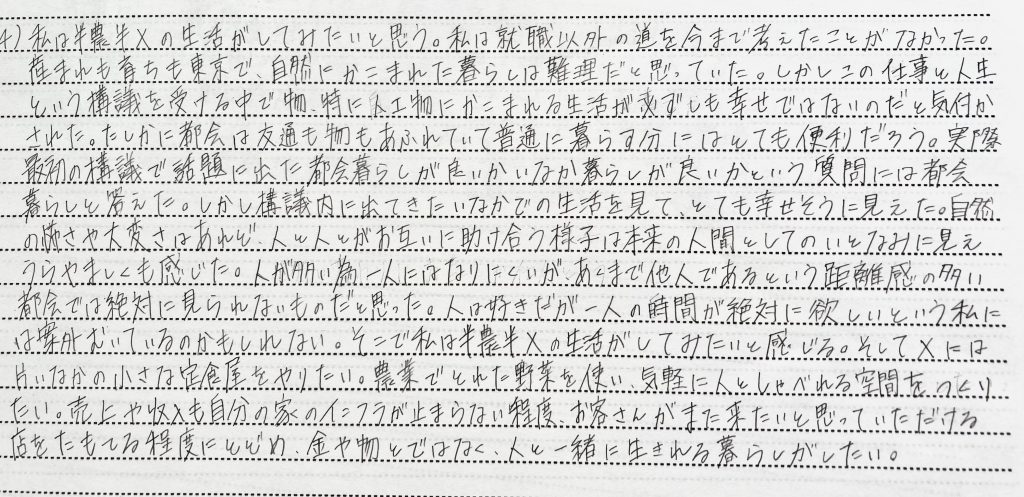 4) 私は半農半Xの生活がしてみたいと思う。私は就職以外の道を今まで考えたことがなかった。
産まれも育ちも東京で、自然にかこまれた暮らしは難理だと思っていた。しかしこの仕事と人生
という構議を受ける中で物、特に人工物にかこまれる生活が必ずしも幸せではないのだと気付か
された。たしかに都会は交通も物もあふれていて普通に暮らす分にはとても便利だろう。実際
最初の構議で話題に出た都会暮らしが良いかいなか暮らしが良いかという質問には都会
暮らしと答えた。しかし構議内に出てきたいなかでの生活を見て、とても幸せそうに見えた。自然
の怖さや大変さはあれど、人と人とがお互いに助け合う様子は本来の人間としてのいとなみに見え
うらやましくも感じた。人が多い為一人にはなりにくいが、あくまで他人であるという距離感の多い
都会では絶対に見られないものだと思った。人は好きだが一人の時間が絶対に欲しいという私に
は案外むいているのかもしれない。そこで私は半農半Xの生活がしてみたいと感じる。そしてXには
片いなかの小さな定食屋をやりたい。農業でとれた野菜を使い、気軽に人としゃべれる空間をつくり
たい。売上や収入も自分の家のインフラが止まらない程度、お客さんがまた来たいと思っていただける
店をたもてる程度にとどめ、金や物とではなく、人と一緒に生きれる暮らしがしたい。